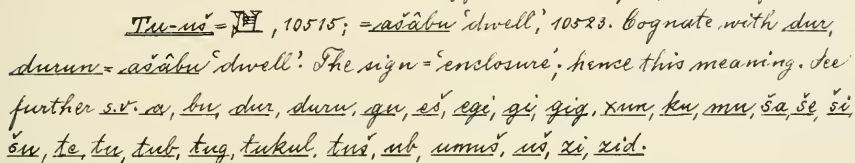 Tu-uš = 𒂠, 10515; = ašâbu 'dwell', 10523. Cognate with dur,
durun = ašâbu 'dwell'. The sign = 'enclosure'; hence this meaning. See
further s.v. a, bu, dur, duru, gu, eš, egi, gi, gig, xun, ku, mu, ša, še, ši,
šu, te, tu, tub, tug, tukul, tuš, ub, umuš, uš, zi, zid.